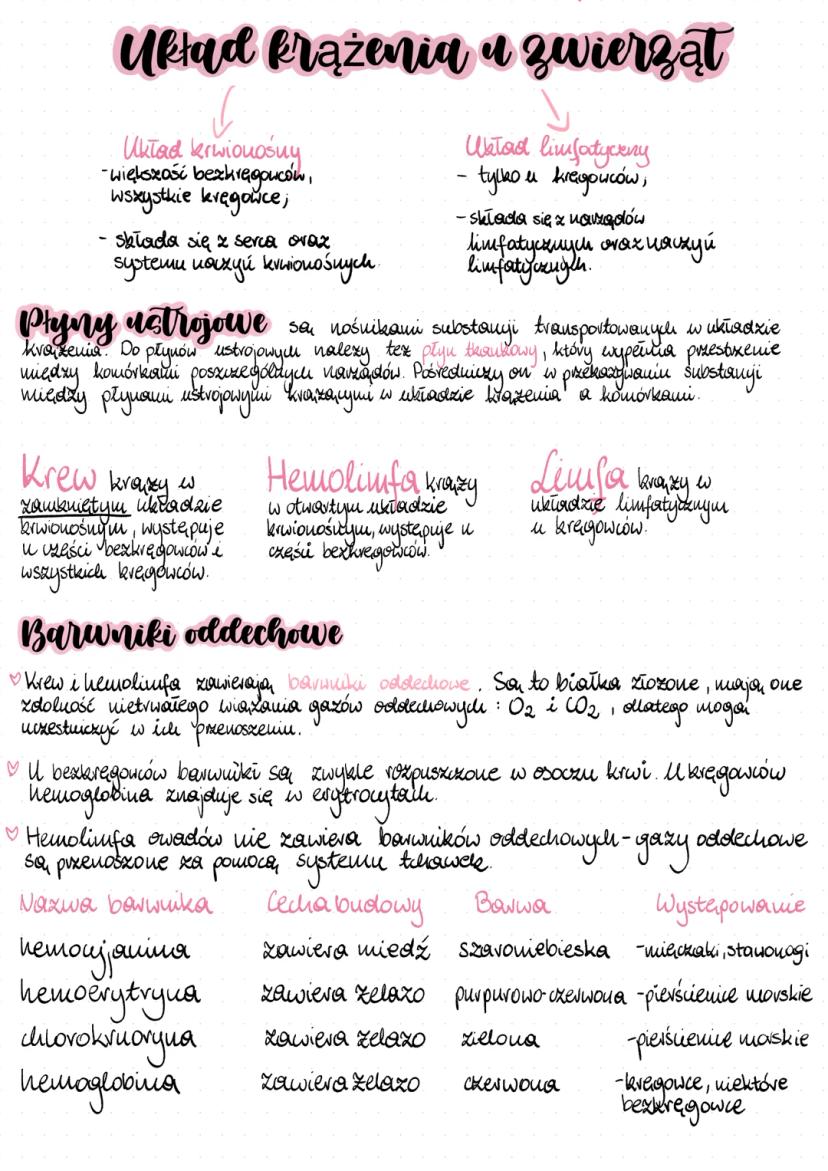 Układ krążenia u zwierząt
Układ krwionośny
- większość bezkręgowców,
wszystkie kręgowce;
- składa się z serca oraz
systemu naczyń krwionośnych.
Układ limfatyczny
- tylko u kręgowców;
- składa się z narządów
limfatycznych oraz naczyń
limfatycznych.
Płyny ustrojowe są nośnikami substancji transportowanych w układzie
krążenia. Do płynów ustrojowych należy też płyn tkankowy, który wypełnia przestrzenie
między komórkami poszczególnych narządów. Pośredniczy on w przekazywaniu substancji
między płynami ustrojowymi krążącymi w układzie krążenia a komórkami.
Krew krąży w
zamkniętym układzie
krwionośnym, występuje
u części bezkręgowców i
wszystkich kręgowców.
Hemolimfa krąży
w otwartym układzie
krwionośnym, występuje u
części bezkręgowców.
Limfa krąży w
układzie limfatycznym
u kręgowców.
Barwniki oddechowe
Krew i hemolimfa zawierają barwniki oddechowe. Są to białka złożone, mają one
zdolność nietrwałego wiązania gazów oddechowych: O₂ i CO₂, dlatego mogą
uczestniczyć w ich przenoszeniu.
U bezkręgowców barwniki są zwykle rozpuszczone w osoczu krwi. U kręgowców
hemoglobina znajduje się w erytrocytach.
Hemolimfa owadów nie zawiera barwników oddechowych - gazy oddechowe
są przenoszone za pomocą systemu tchawek.
Nazwa barwnika Cecha budowy Barwa Występowanie
hemocyjanina zawiera miedź szaroniebieska - mięczaki, stawonogi
hemoerytryna zawiera żelazo purpurowo-czerwona - pierścienice morskie
chlorokruoryna zawiera żelazo zielona - pierścienice morskie
hemoglobina zawiera żelazo czerwona - kręgowce, niektóre
bezkręgowce